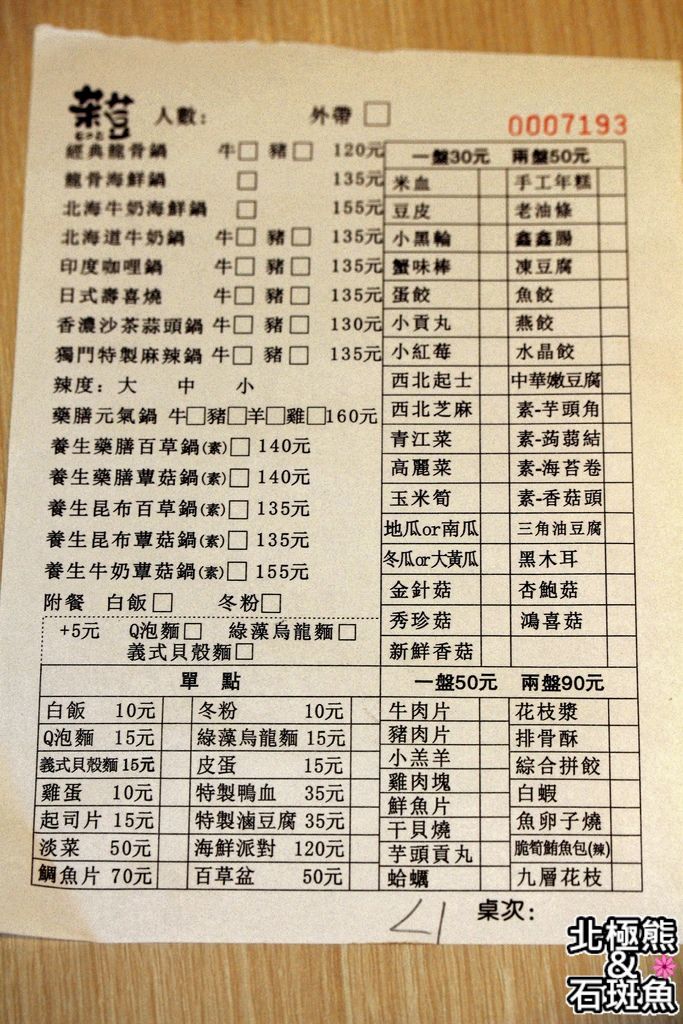 菜荳
人數: 外帶 □
0007193
經典龍骨鍋 牛□ 豬□ 120元
龍骨海鮮鍋 □ 135元
北海牛奶海鮮鍋 □ 155元
北海道牛奶鍋 牛□ 豬□ 135元
印度咖哩鍋 牛□ 豬□ 135元
日式壽喜燒 牛□ 豬□ 135元
香濃沙茶蒜頭鍋 牛□ 豬□ 130元
獨門特製麻辣鍋 牛□ 豬□ 135元
辣度: 大 中 小
藥膳元氣鍋 牛□豬□羊□雞□160元
養生藥膳百草鍋(素)□ 140元
養生藥膳蕈菇鍋(素)□ 140元
養生昆布百草鍋(素)□ 135元
養生昆布蕈菇鍋(素)□ 135元
養生牛奶蕈菇鍋(素)□ 155元
附餐 白飯□ 冬粉□
+5元 Q泡麵□ 綠藻烏龍麵□
義式貝殼麵□
一盤30元 兩盤50元
米血 手工年糕
豆皮 老油條
小黑輪 鑫鑫腸
蟹味棒 凍豆腐
蛋餃 魚餃
小貢丸 燕餃
小紅莓 水晶餃
西北起士 中華嫩豆腐
西北芝麻 素-芋頭角
青江菜 素-蒟蒻結
高麗菜 素-海苔卷
玉米筍 素-香菇頭
地瓜or南瓜 三角油豆腐
冬瓜or大黃瓜 黑木耳
金針菇 杏鮑菇
秀珍菇 鴻喜菇
新鮮香菇
單 點
白飯 10元 冬粉 10元
Q泡麵 15元 綠藻烏龍麵 15元
義式貝殼麵 15元 皮蛋 15元
雞蛋 10元 特製鴨血 35元
起司片 15元 特製滷豆腐 35元
淡菜 50元 海鮮派對 120元
鯛魚片 70元 百草盆 50元
一盤50元 兩盤90元
牛肉片 花枝漿
豬肉片 排骨酥
小羔羊 綜合拼餃
雞肉塊 白蝦
鮮魚片 魚卵子燒
干貝燒 脆筍鮪魚包(辣)
芋頭貢丸 九層花枝
蛤蠣
桌次:
北極熊
&
石斑魚